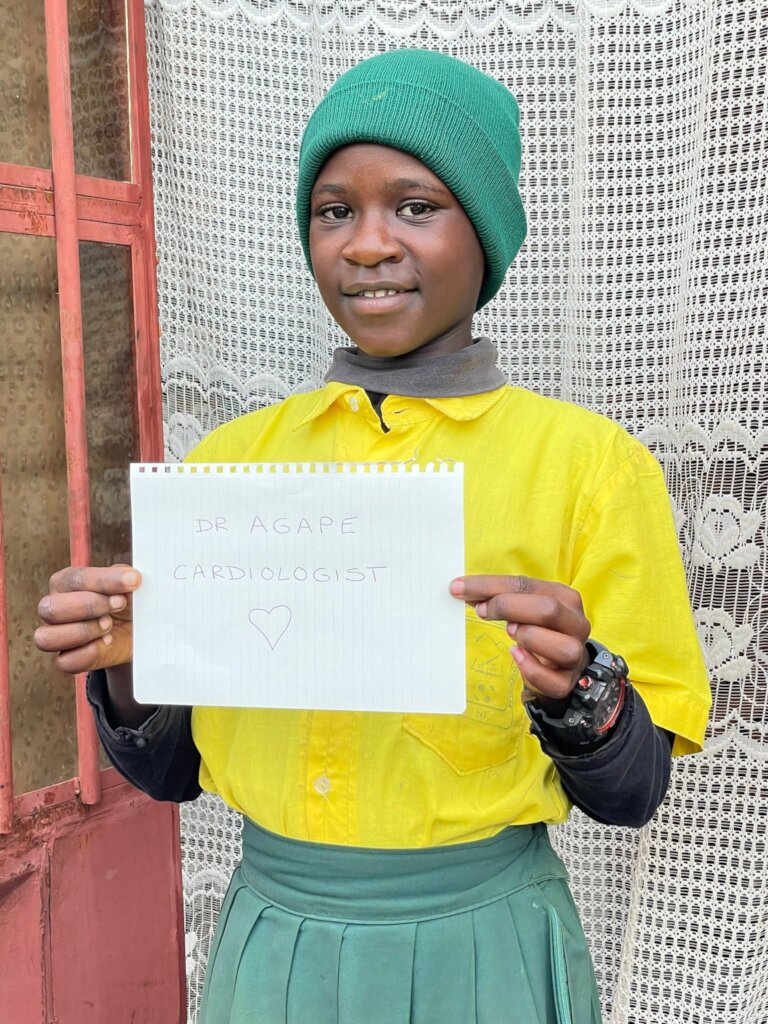 DR AGAPE
CARDIOLOGIST